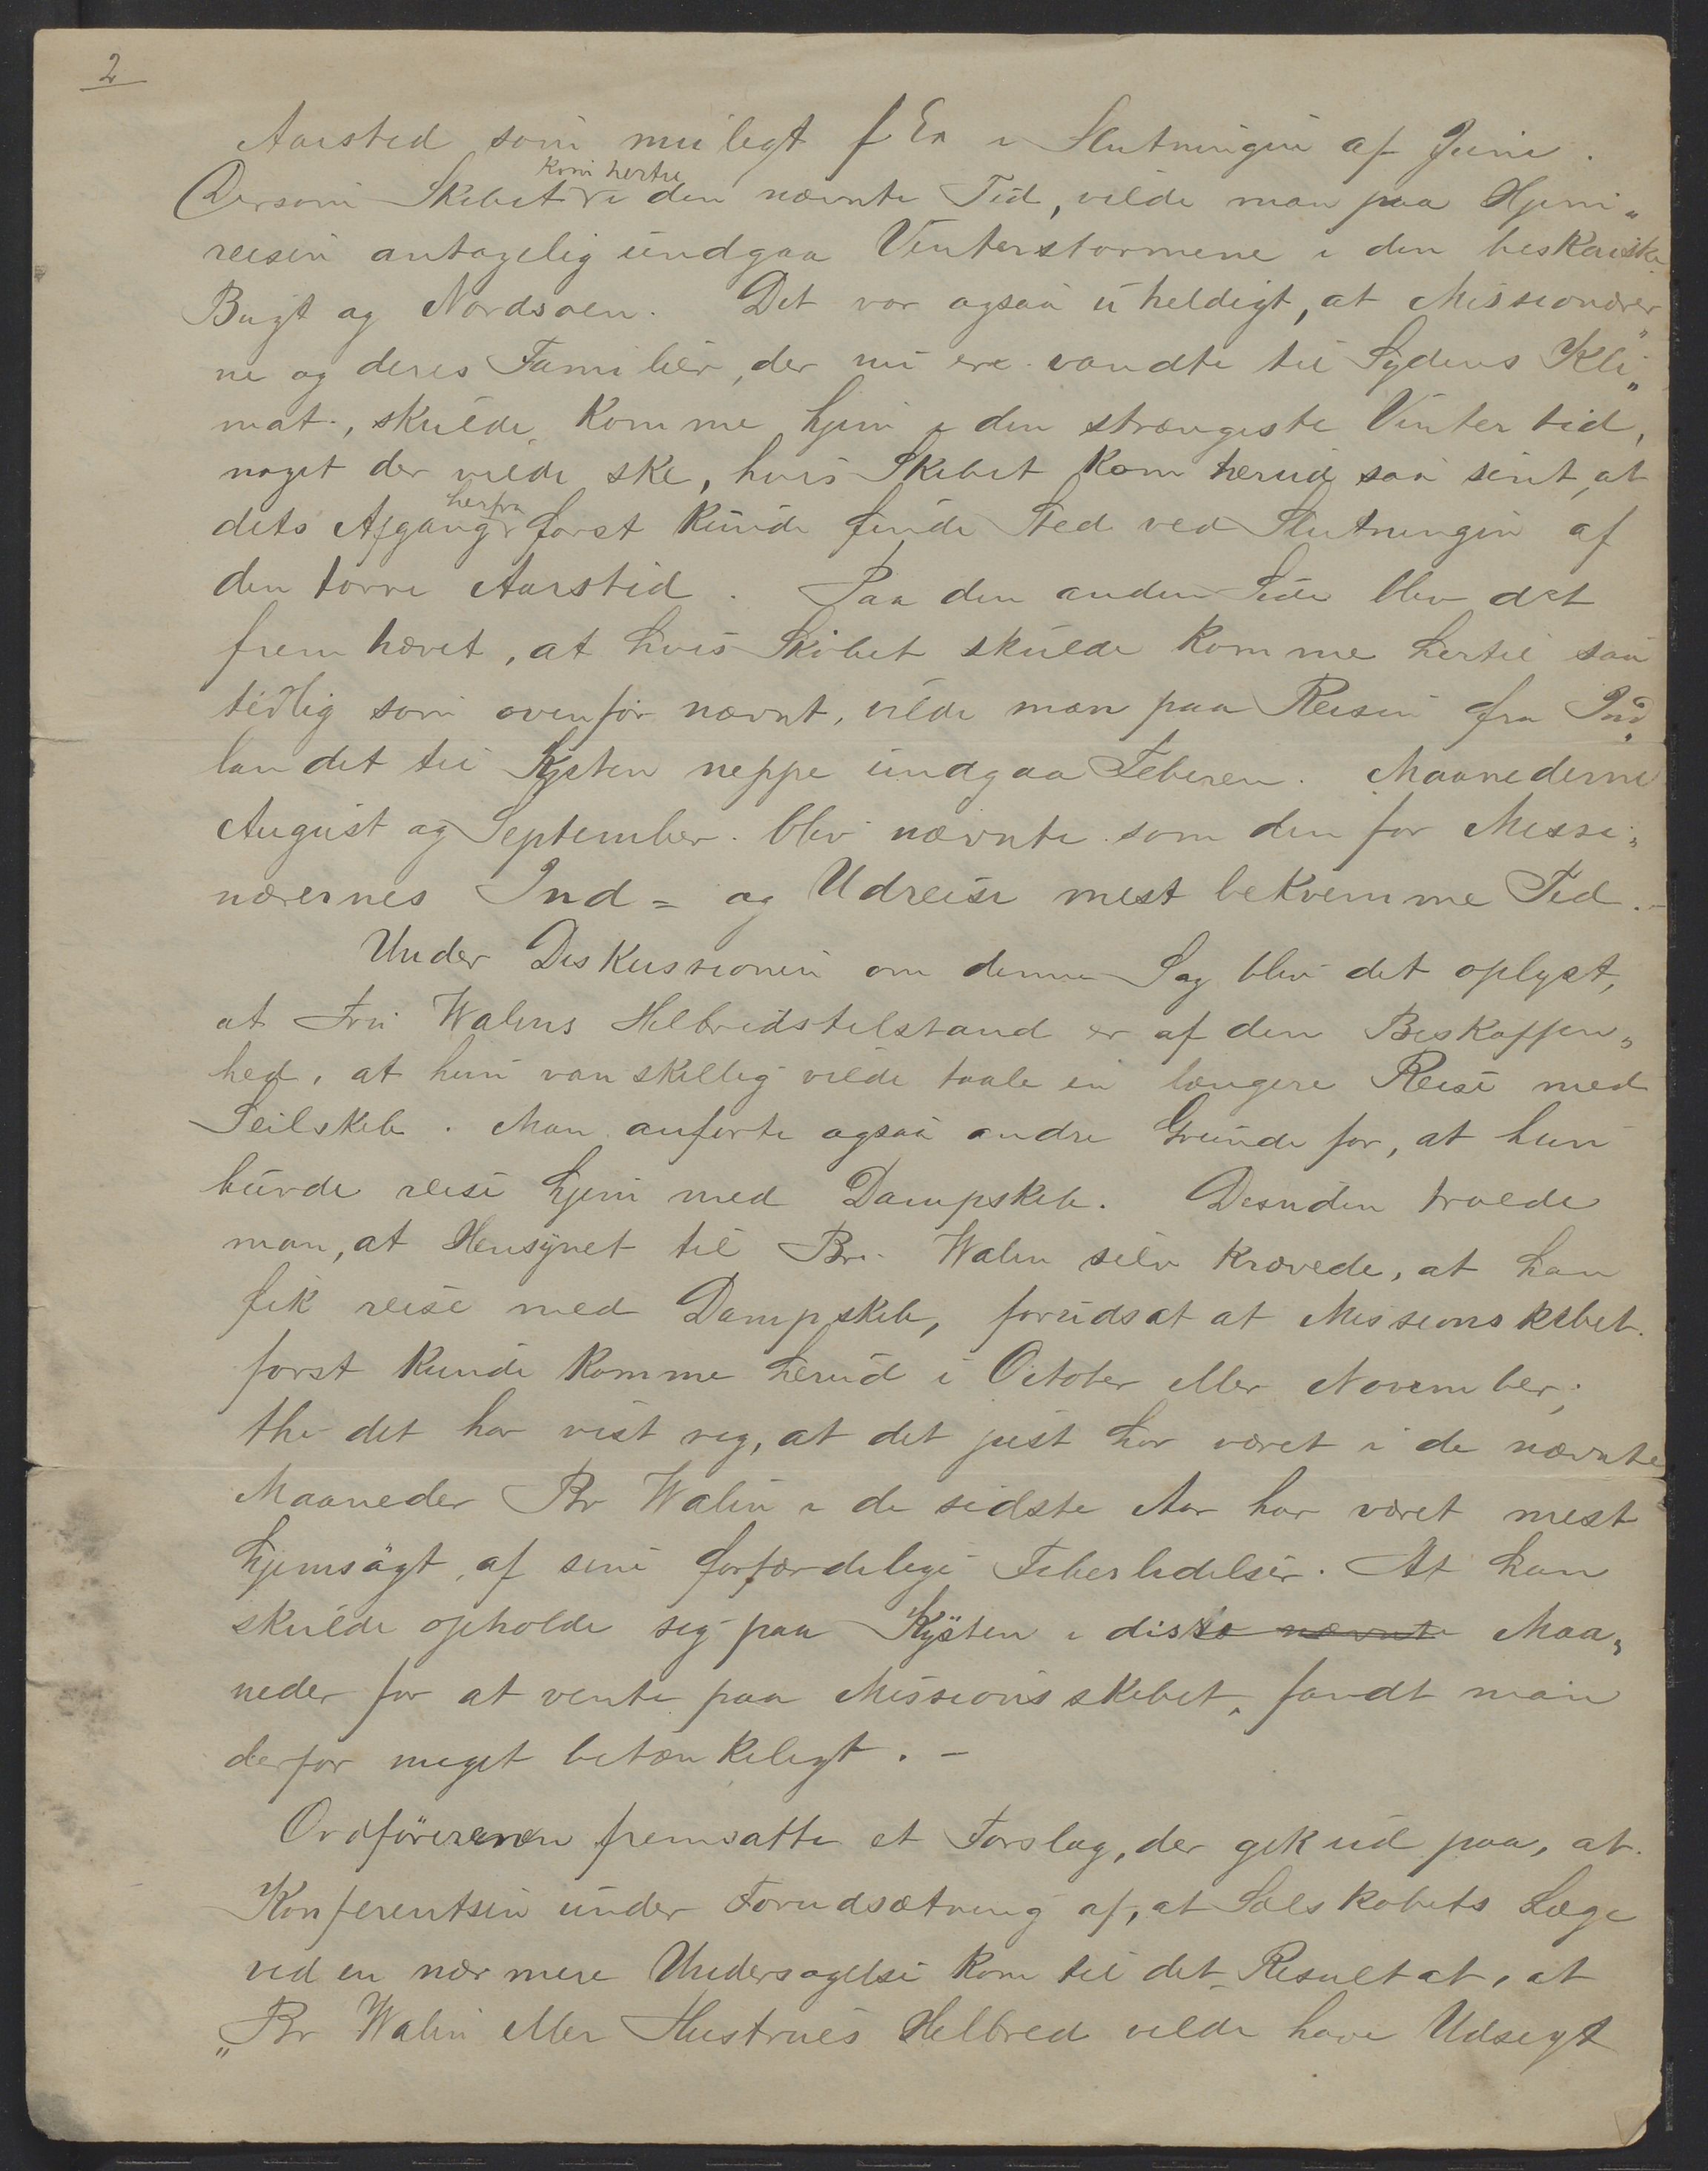 2
Aarstid som muligt f Ex i Slutningen af Juni.
Dersom Skibet kom hertil i den nævnte Tid, vilde man paa Hjem„
reisen antagelig undgaa Vinterstormene i den beskaiske
Bugt og Nordsøen. Det var ogsaa uheldigt, at Missionærer„
ne og deres Familier, der nu ere vandte til Sydens Kli„
mat, skulde komme hjem i den strængeste Vintertid,
noget der vilde ske, hvis Skibet kom herud saa sent, at
dets Afgang herfra først kunde finde Sted ved Slutningen af
den tørre Aarstid. Paa den anden Side blev det
fremhævet, at hvis Skibet skulde komme hertil saa
tidlig som ovenfor nævnt, vilde man paa Reisen fra Ind„
landet til Kysten neppe undgaa Feberen. Maanederne
August og September blev nævnte som den for Missi„
nærernes Ind= og Udreise mest bekvemme Tid.-
Under Diskussionen om denne Sag blev det oplyst,
at Fru Walens Helbredstilstand er af den Beskaffen„
hed, at hun vanskellig vilde taale en længere Reise med
Seilskib. Man anførte ogsaa andre Grunde for, at hun
burde reise hjem med Dampskib. Desuden troede
man, at Hensynet til Br. Walen selv krævede, at han
fik reise med Dampskib, forudsat at Missionskibet
først kunde komme herud i October eller November;
thi det har vist sig, at det just har været i de nævnte
Maaneder Br Walen i de sidste Aar har været mest
hjemsøgt af sine forfærdelige Feberlidelser. At han
skulde opholde sig paa Kysten i disse nævnte Maa„
neder for at vente paa Missionsskibet, fandt man
derfor meget betænkeligt. -
Ordføreren fremsatte et Forslag, der gik ud paa, at
Konferentsen under Forudsætning af, at Selskabets Læge
ved en nærmere Undersøgelse kom til det Resultat, at
„Br Walen eller Hustrues Helbred vilde have Udsigt